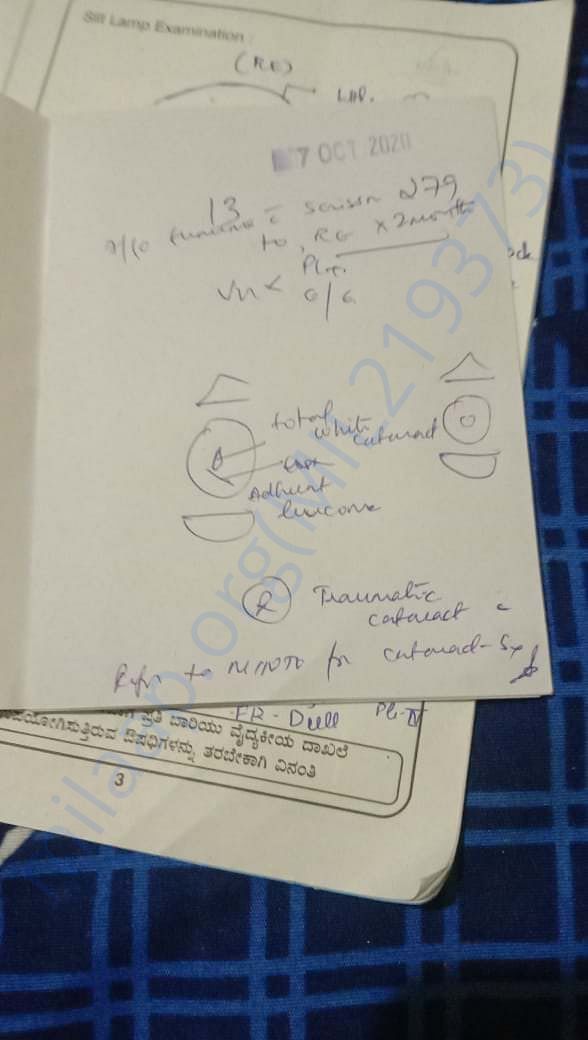 Slit Lamp Examination
(RE)
7 OCT 2020
13 279
scissor
to, RE x 2 months
Vn < 6/6
total
white
cataract
Adherent
leucoma
(R) Traumatic
cataract c
Refer to MINTO for cataract - Sx
FR - Dull
ಪ್ರತಿ ಬಾರಿಯು ವೈದ್ಯಕೀಯ ದಾಖಲೆ
ಔಷಧಿಗಳನ್ನು ತರಬೇಕಾಗಿ ವಿನಂತಿ
3
milaap.org(MIL219373)